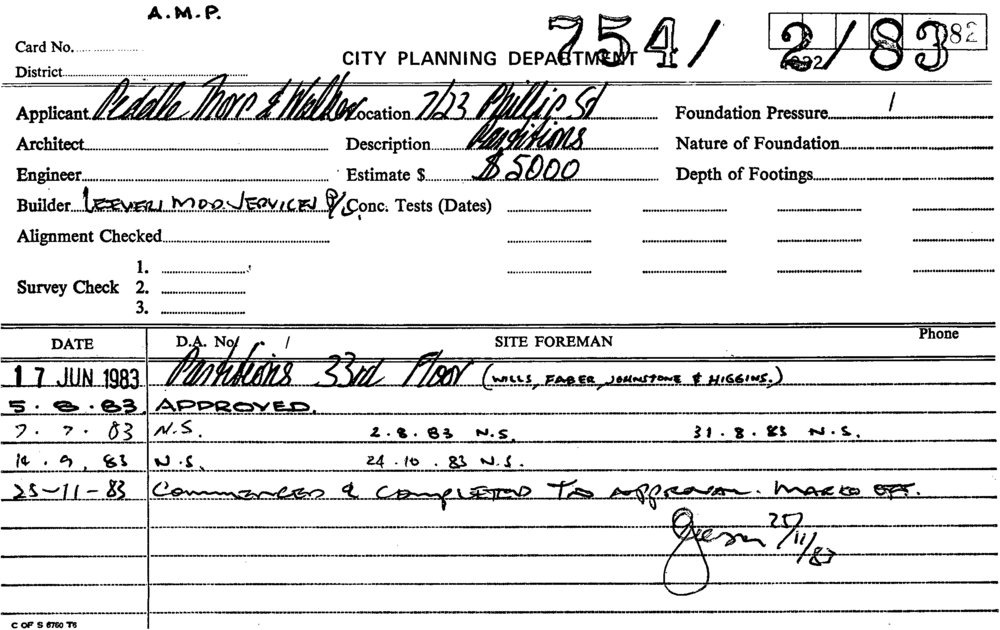 A.M.P.
Card No. CITY PLANNING DEPARTMENT 754/ 2/83 82
District
Applicant Peddle Thorp & Walker Location 7/23 Phillip St Foundation Pressure /
Architect Description Partitions Nature of Foundation
Engineer Estimate $ $5000 Depth of Footings
Builder MOD. SERVICES P/L Conc. Tests (Dates)
Alignment Checked
1.
Survey Check 2.
3.
DATE D.A. No. / SITE FOREMAN Phone
17 JUN 1983 Partitions 33rd Floor (WILLS, FABER, JOHNSTONE & HIGGINS.)
5.8.83 APPROVED.
7.7.83 N.S. 2.8.83 N.S. 31.8.83 N.S.
14.9.83 N.S. 24.10.83 N.S.
25-11-83 COMMENCED & COMPLETED TO APPROVAL. MARKED OFF.
25/11/83
C OF S 6760 T6